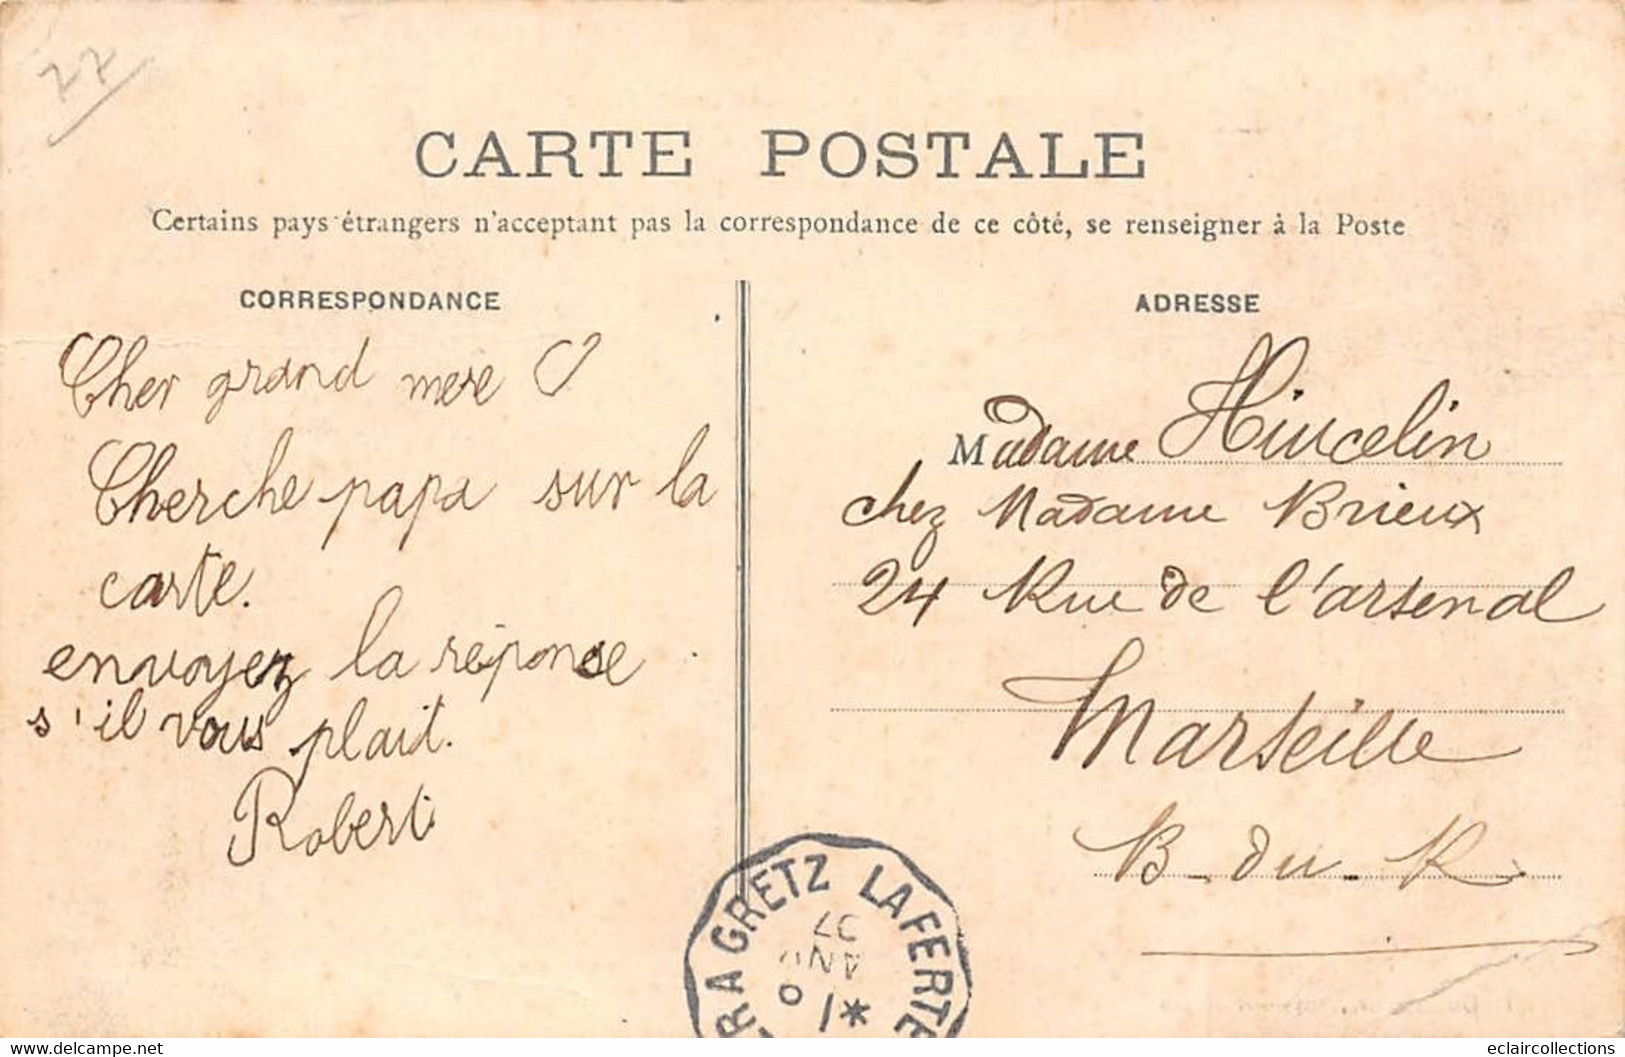 77
CARTE POSTALE
Certains pays étrangers n'acceptant pas la correspondance de ce côté, se renseigner à la Poste
CORRESPONDANCE
Cher grand mere
Cherche papa sur la
carte.
envoyez la réponse
s'il vous plait.
Robert
ADRESSE
Madame Hincelin
chez Madame Brieux
24 Rue de l'arsenal
Marseille
B. du. R
GRETZ LA FERTE
eclaircollections